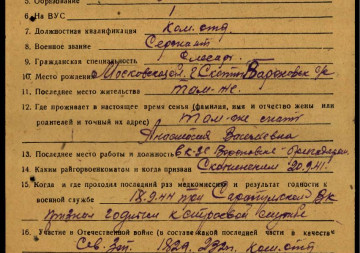 5. Образование
6. На ВУС 1
7. Должностная квалификация Ком. отд
8. Военное звание Сержант
9. Гражданская специальность Слесарь
10. Место рождения Московская
11. Последнее место жительства Там-же
12. Где проживает в настоящее время семья (фамилия, имя и отчество жены или
родителей и точный их адрес) Там-же
Анастасия Васильевна
13. Последнее место работы и должность
14. Каким райгорвоенкоматом и когда призван 20.9.41
15. Когда и где проходил последний раз медкомиссию и результат годности к
военной службе 18.9.44 при
признан годным к строевой службе
16. Участие в Отечественной войне (в составе какой последней части в качестве
Сев. Зап. Ком. отд